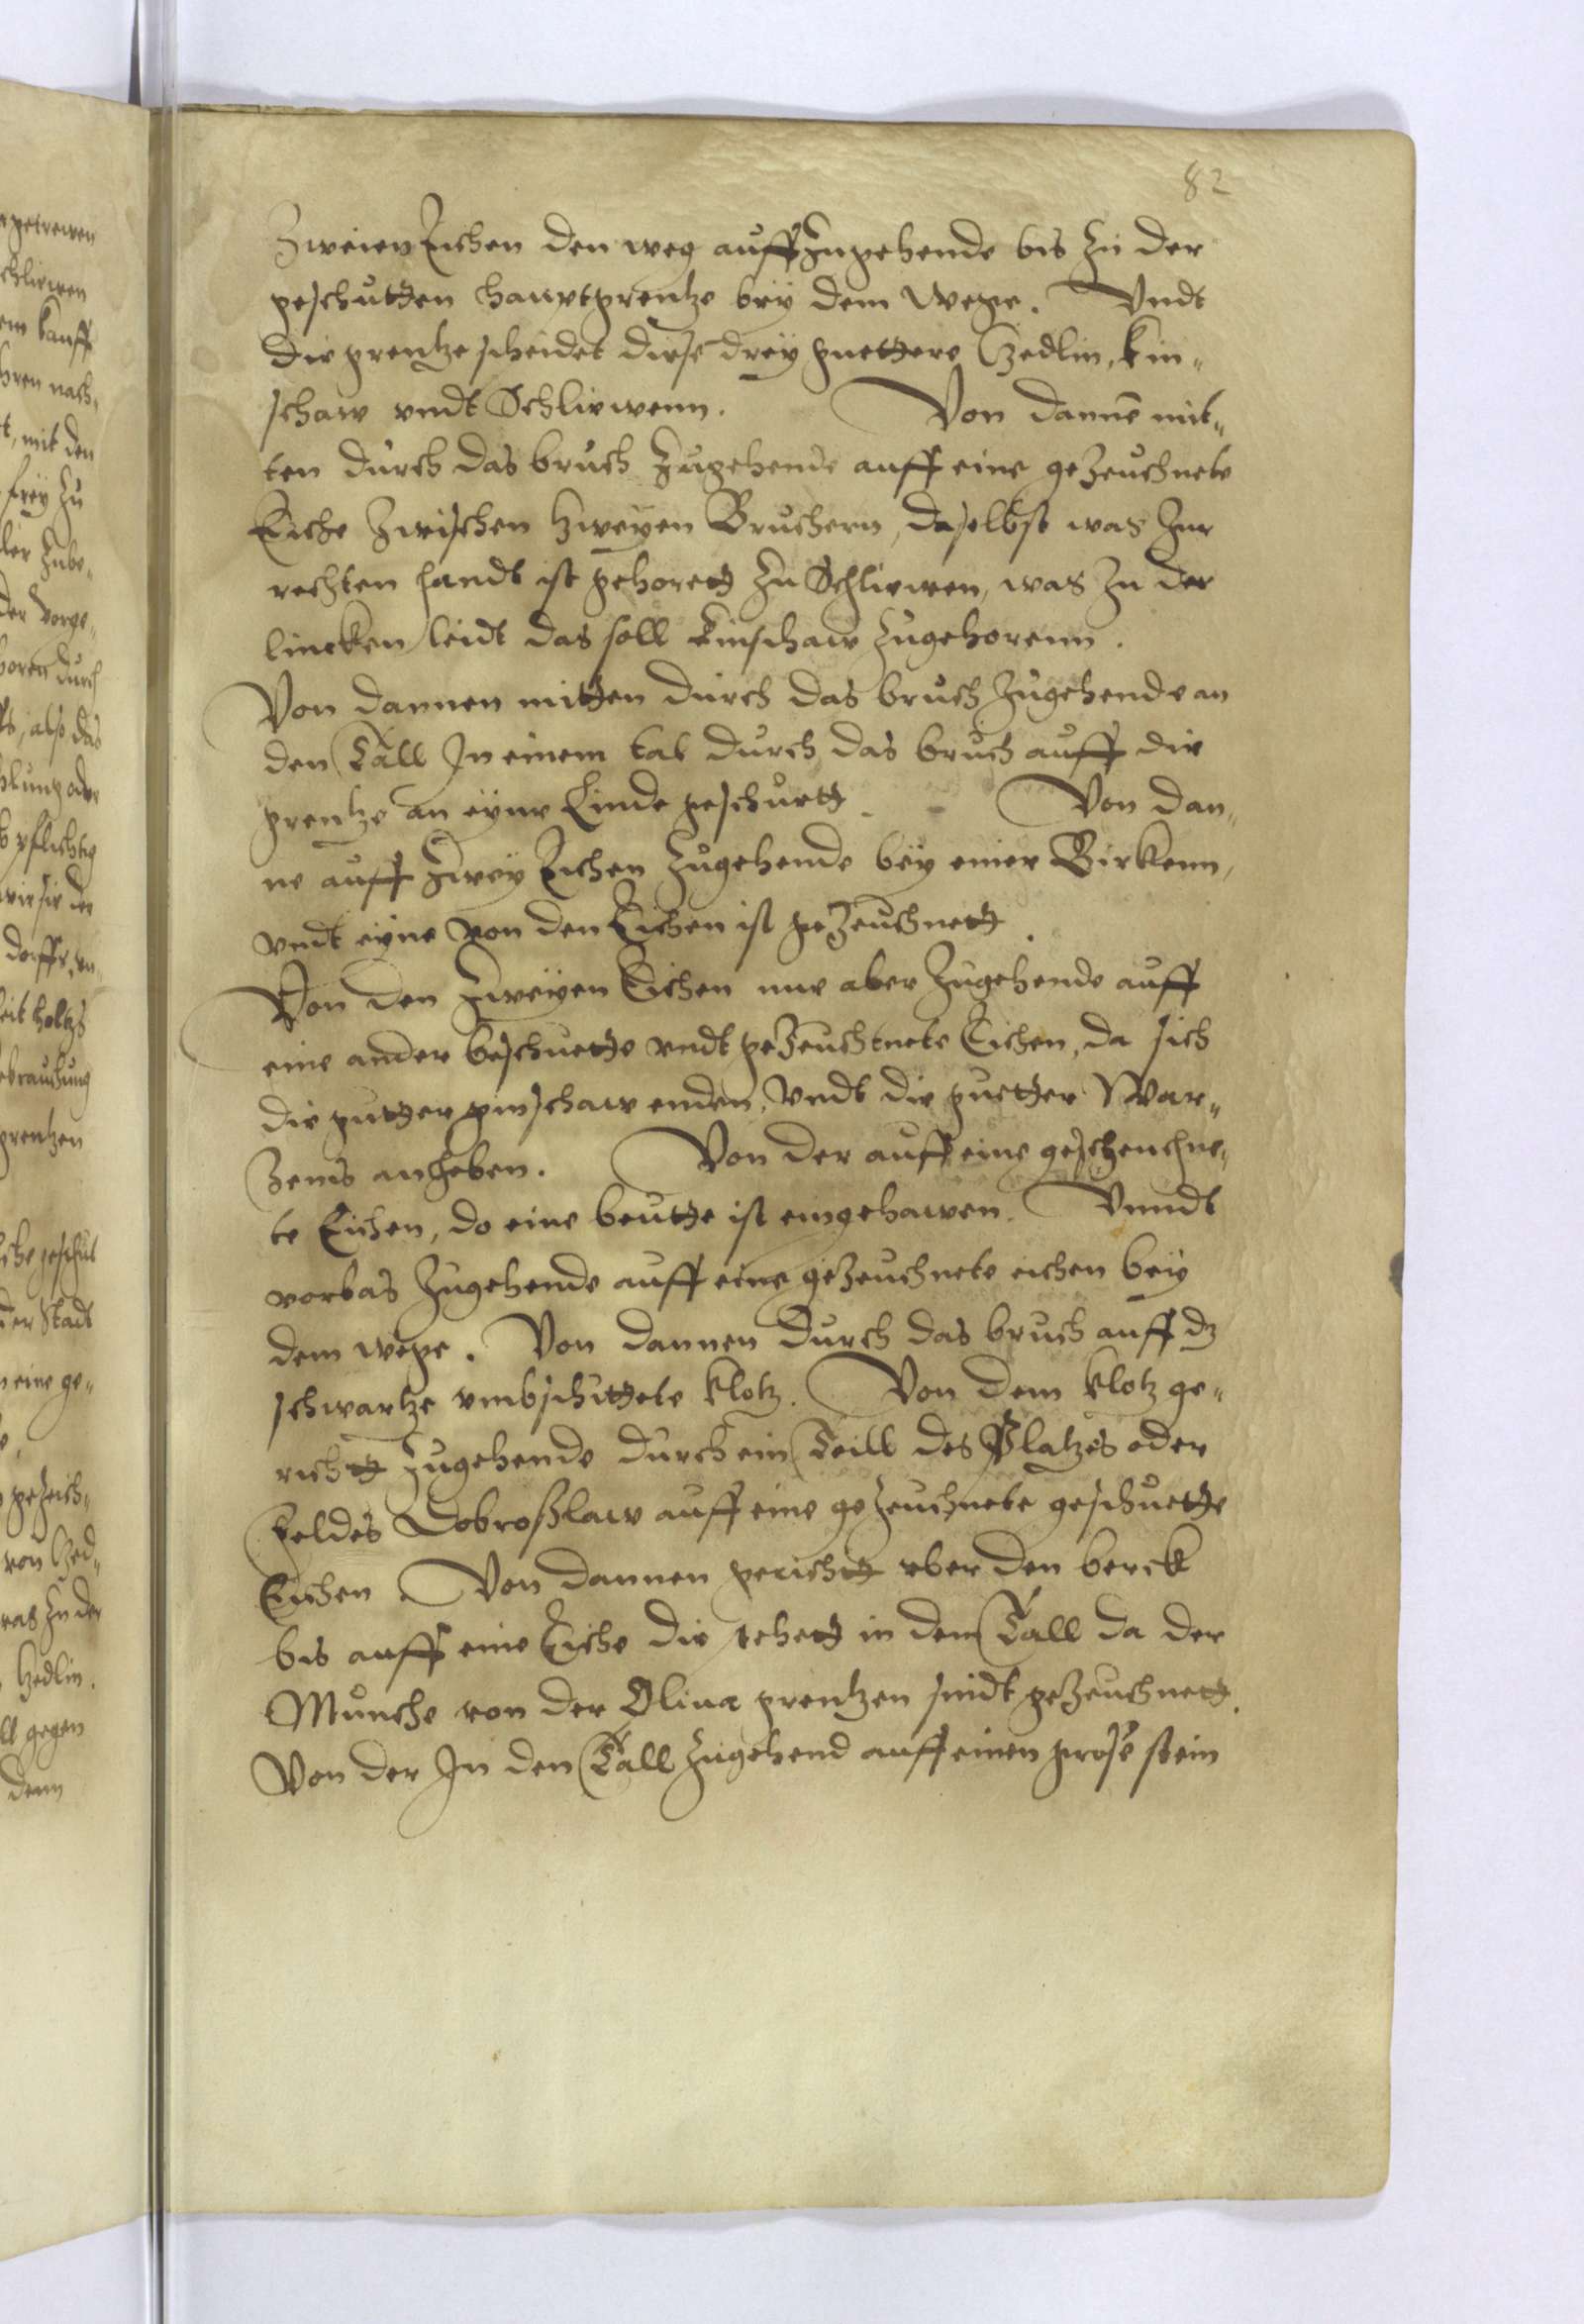 82
Zweien Eichen den weg auff Zugehende bis Zu der
geschutten hauptgrentze bey dem Wege. Vndt
die grentze scheidet diese drey guettere Czedlin, kin„
schaw vndt Schliewenn. Von dannē mit„
ten durch das bruch Zugehende auff eine geZeuchnete
Eiche Zwischen Zweyen Bruchern, daselbst was Zur
rechten handt ist gehorett Zu Schliewen, was Zu der
lincken leidt das soll Kinschaw Zugehorenn.
Von dannen mitten durch das bruch Zugehende an
den Tall In einem tal durch das bruch auff die
grentze an eyne Linde geschuett. Von dan„
ne auff Zwey Eichen Zugehende bey einer Birkenn,
vndt eyne von den Eichen ist geZeuchnett.
Von den Zweyen Eichen nue aber Zugehende auff
eine ander beschuette vndt geZeuchtnete Eichen, da sich
die gutter ginschaw enden, Vndt die guetter War„
Zenis anheben. Von der auff eine geschzeuchne„
te Eichen, do eine beutte ist eingehawen. Vnndt
vorbas Zugehende auff eine geZeuchnete eichen bey
dem wege. Von dannen durch das bruch auff dz
schwartze vmbschuttete klotz. Von dem klotz ge„
richtt Zugehende durch ein Teill des Platzes oder
Feldes Dobroßlaw auff eine geZeuchnete geschuette
Eichen. Von dannen gerichtt vber den berck
bis auff eine Eiche die stehett in dem Tall da der
Münche von der Oliua grentzen sindt geZeuchnett.
Von der In den Tall Zugehend auff einen grosē stein